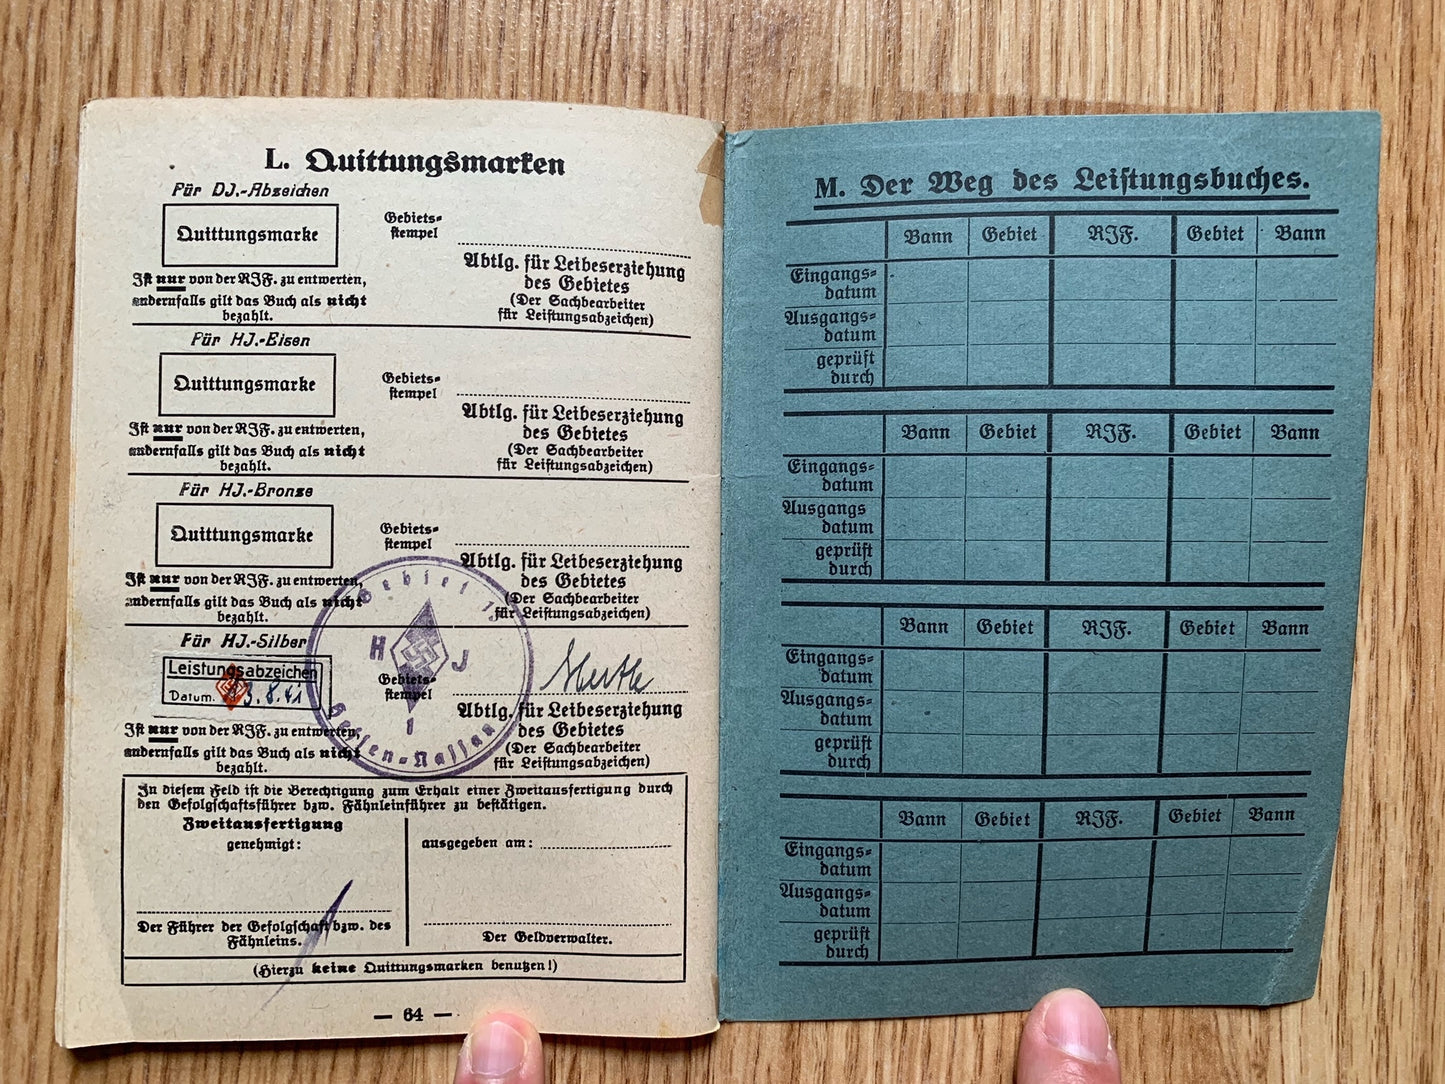 L. Quittungsmarken
Für DJ.-Abzeichen
Quittungsmarke
Gebiets-
stempel
Ist nur von der RJF. zu entwerten,
andernfalls gilt das Buch als nicht
bezahlt.
Abtlg. für Leibeserziehung
des Gebietes
(Der Sachbearbeiter
für Leistungsabzeichen)
Für HJ.-Eisen
Quittungsmarke
Gebiets-
stempel
Ist nur von der RJF. zu entwerten,
andernfalls gilt das Buch als nicht
bezahlt.
Abtlg. für Leibeserziehung
des Gebietes
(Der Sachbearbeiter
für Leistungsabzeichen)
Für HJ.-Bronze
Quittungsmarke
Gebiets-
stempel
Ist nur von der RJF. zu entwerten,
andernfalls gilt das Buch als nicht
bezahlt.
Abtlg. für Leibeserziehung
des Gebietes
(Der Sachbearbeiter
für Leistungsabzeichen)
Für HJ.-Silber
Leistungsabzeichen
Datum. 13.8.41
Gebiet 13
H J
1
Hessen-Nassau
Gebiets-
stempel
Ist nur von der RJF. zu entwerten,
andernfalls gilt das Buch als nicht
bezahlt.
Abtlg. für Leibeserziehung
des Gebietes
(Der Sachbearbeiter
für Leistungsabzeichen)
In diesem Feld ist die Berechtigung zum Erhalt einer Zweitausfertigung durch
den Gefolgschaftsführer bzw. Fähnleinführer zu bestätigen.
Zweitausfertigung
genehmigt:
ausgegeben am:
Der Führer der Gefolgschaft bzw. des
Fähnleins.
Der Geldverwalter.
(Hierzu keine Quittungsmarken benutzen!)
— 64 —
M. Der Weg des Leistungsbuches.
Bann Gebiet RJF. Gebiet Bann
Eingangs-
datum
Ausgangs-
datum
geprüft
durch
Bann Gebiet RJF. Gebiet Bann
Eingangs-
datum
Ausgangs
datum
geprüft
durch
Bann Gebiet RJF. Gebiet Bann
Eingangs-
datum
Ausgangs-
datum
geprüft
durch
Bann Gebiet RJF. Gebiet Bann
Eingangs-
datum
Ausgangs-
datum
geprüft
durch